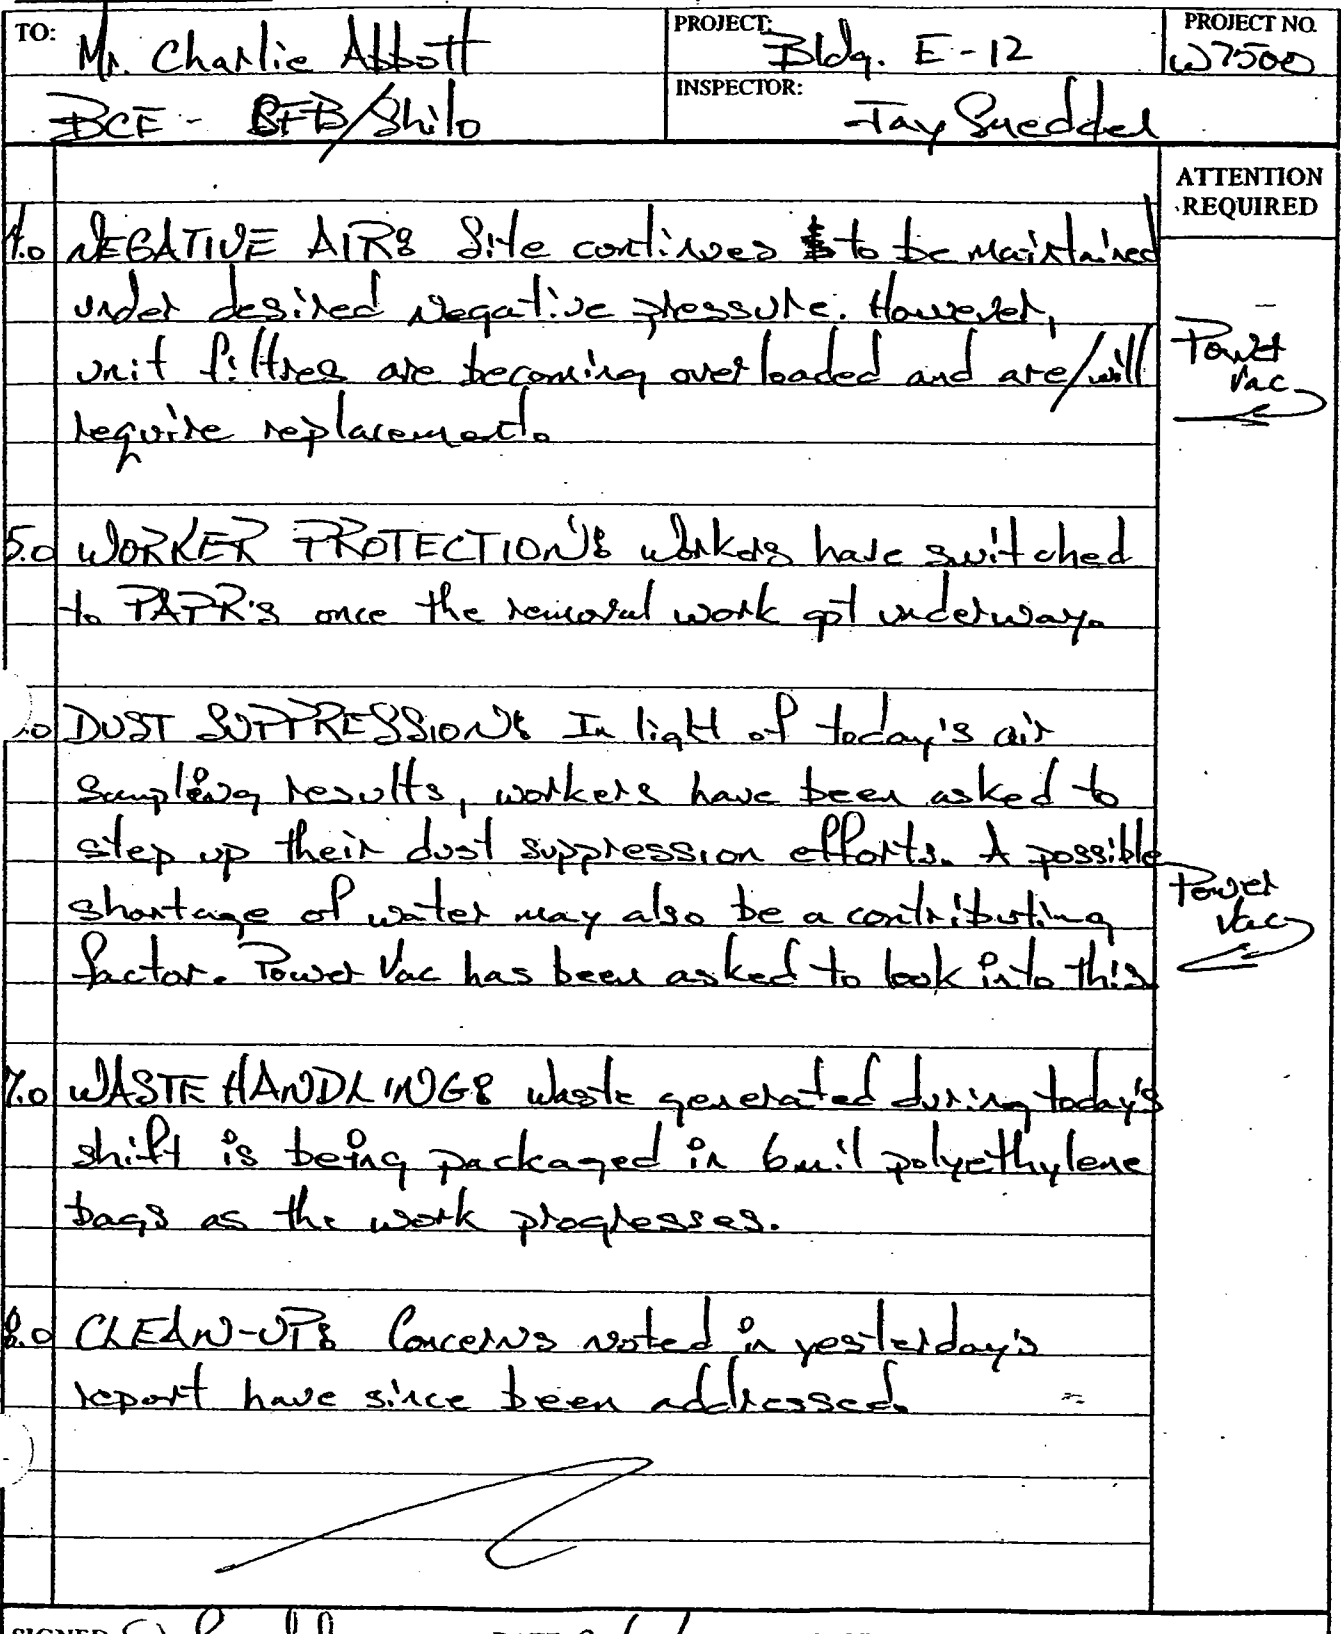 TO: Mr. Charlie Abbott
PROJECT: Bldg. E-12
PROJECT NO. W7500
BCE - CFB/Shilo
INSPECTOR: Jay
ATTENTION REQUIRED
4.0 NEGATIVE AIR: Site continues to be maintained
under desired negative pressure. However,
unit filtres are becoming overloaded and are/will
require replacement.
Power
Vac
5.0 WORKER PROTECTION: Workers have switched
to PAPR's once the removal work got underway.
.0 DUST SUPPRESSION: In light of today's air
sampling results, workers have been asked to
step up their dust suppression efforts. A possible
shortage of water may also be a contributing
factor. Power Vac has been asked to look into this
Power
Vac
7.0 WASTE HANDLING: Waste generated during today's
shift is being packaged in 6 mil polyethylene
bags as the work progresses.
8.0 CLEAN-UP: Concerns noted in yesterday's
report have since been addressed.
SIGNED
DATE